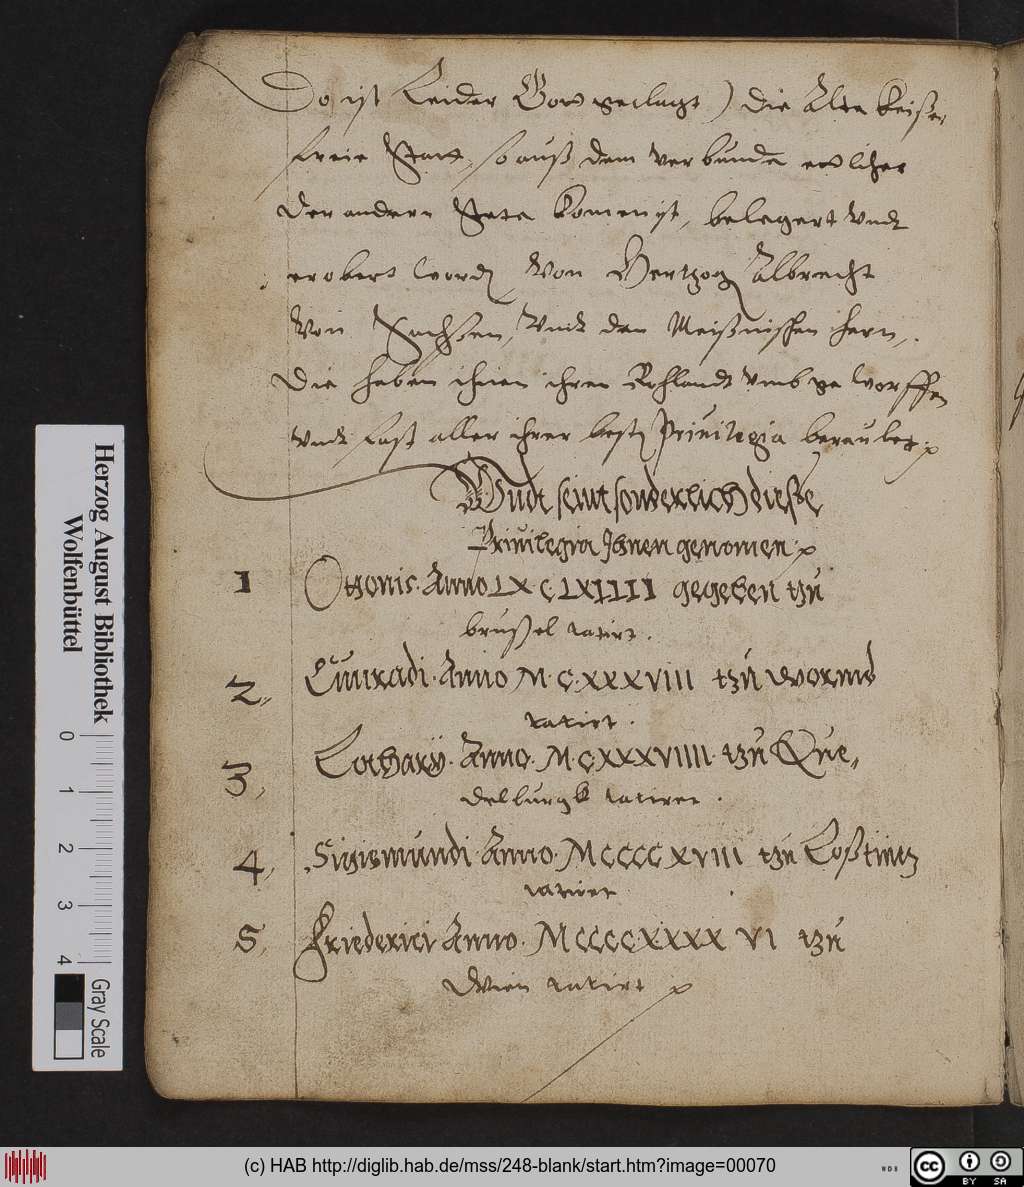 Do ist Leider Gott geclagt ) die Alte keiße,
freie Statt, so auß dem verbunde etlicher
der andern Stete komen ist, belegert vndt
erobert word, Von Hertzog Albrecht
Von Sachßen, vndt den Meißnischen hern,
Die haben ihnen ihren Rohlandt vmb geworffen
vndt fast aller ihrer best Priuilegia beraubet
Vndt seint sonderlich dieße
Priuilegia Ihnen genomen
1 Ottonis. Anno IX C LXIIII gegeben tzu
brußel datirt.
2 Cunradi. Anno M. C. XXXVIII tzu Worms
datirt.
3, Lotharÿ. Anno. M. CXXXVIIII. tzu Que,
delburgk datiret.
4, Sigismundi. Anno. MCCCCXVIII tzu Coßtnitz
datiret
5, Friederici Anno. MCCCCXXXX VI tzu
Wien datirt
Herzog August Bibliothek
Wolfenbüttel
0 1 2 3 4
Gray Scale
(c) HAB http://diglib.hab.de/mss/248-blank/start.htm?image=00070
WDB
cc BY SA